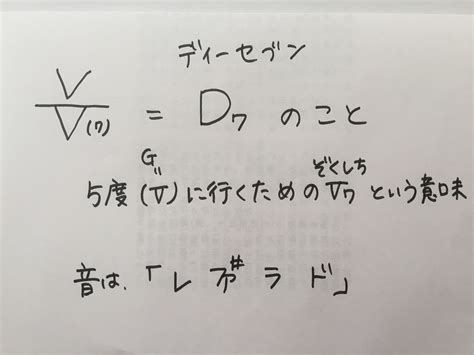 ディーセブン
V/V(7) = D7 のこと
G ぞくしち
5度(V)に行くためのV7という意味
音は、「レ ファ# ラ ド」